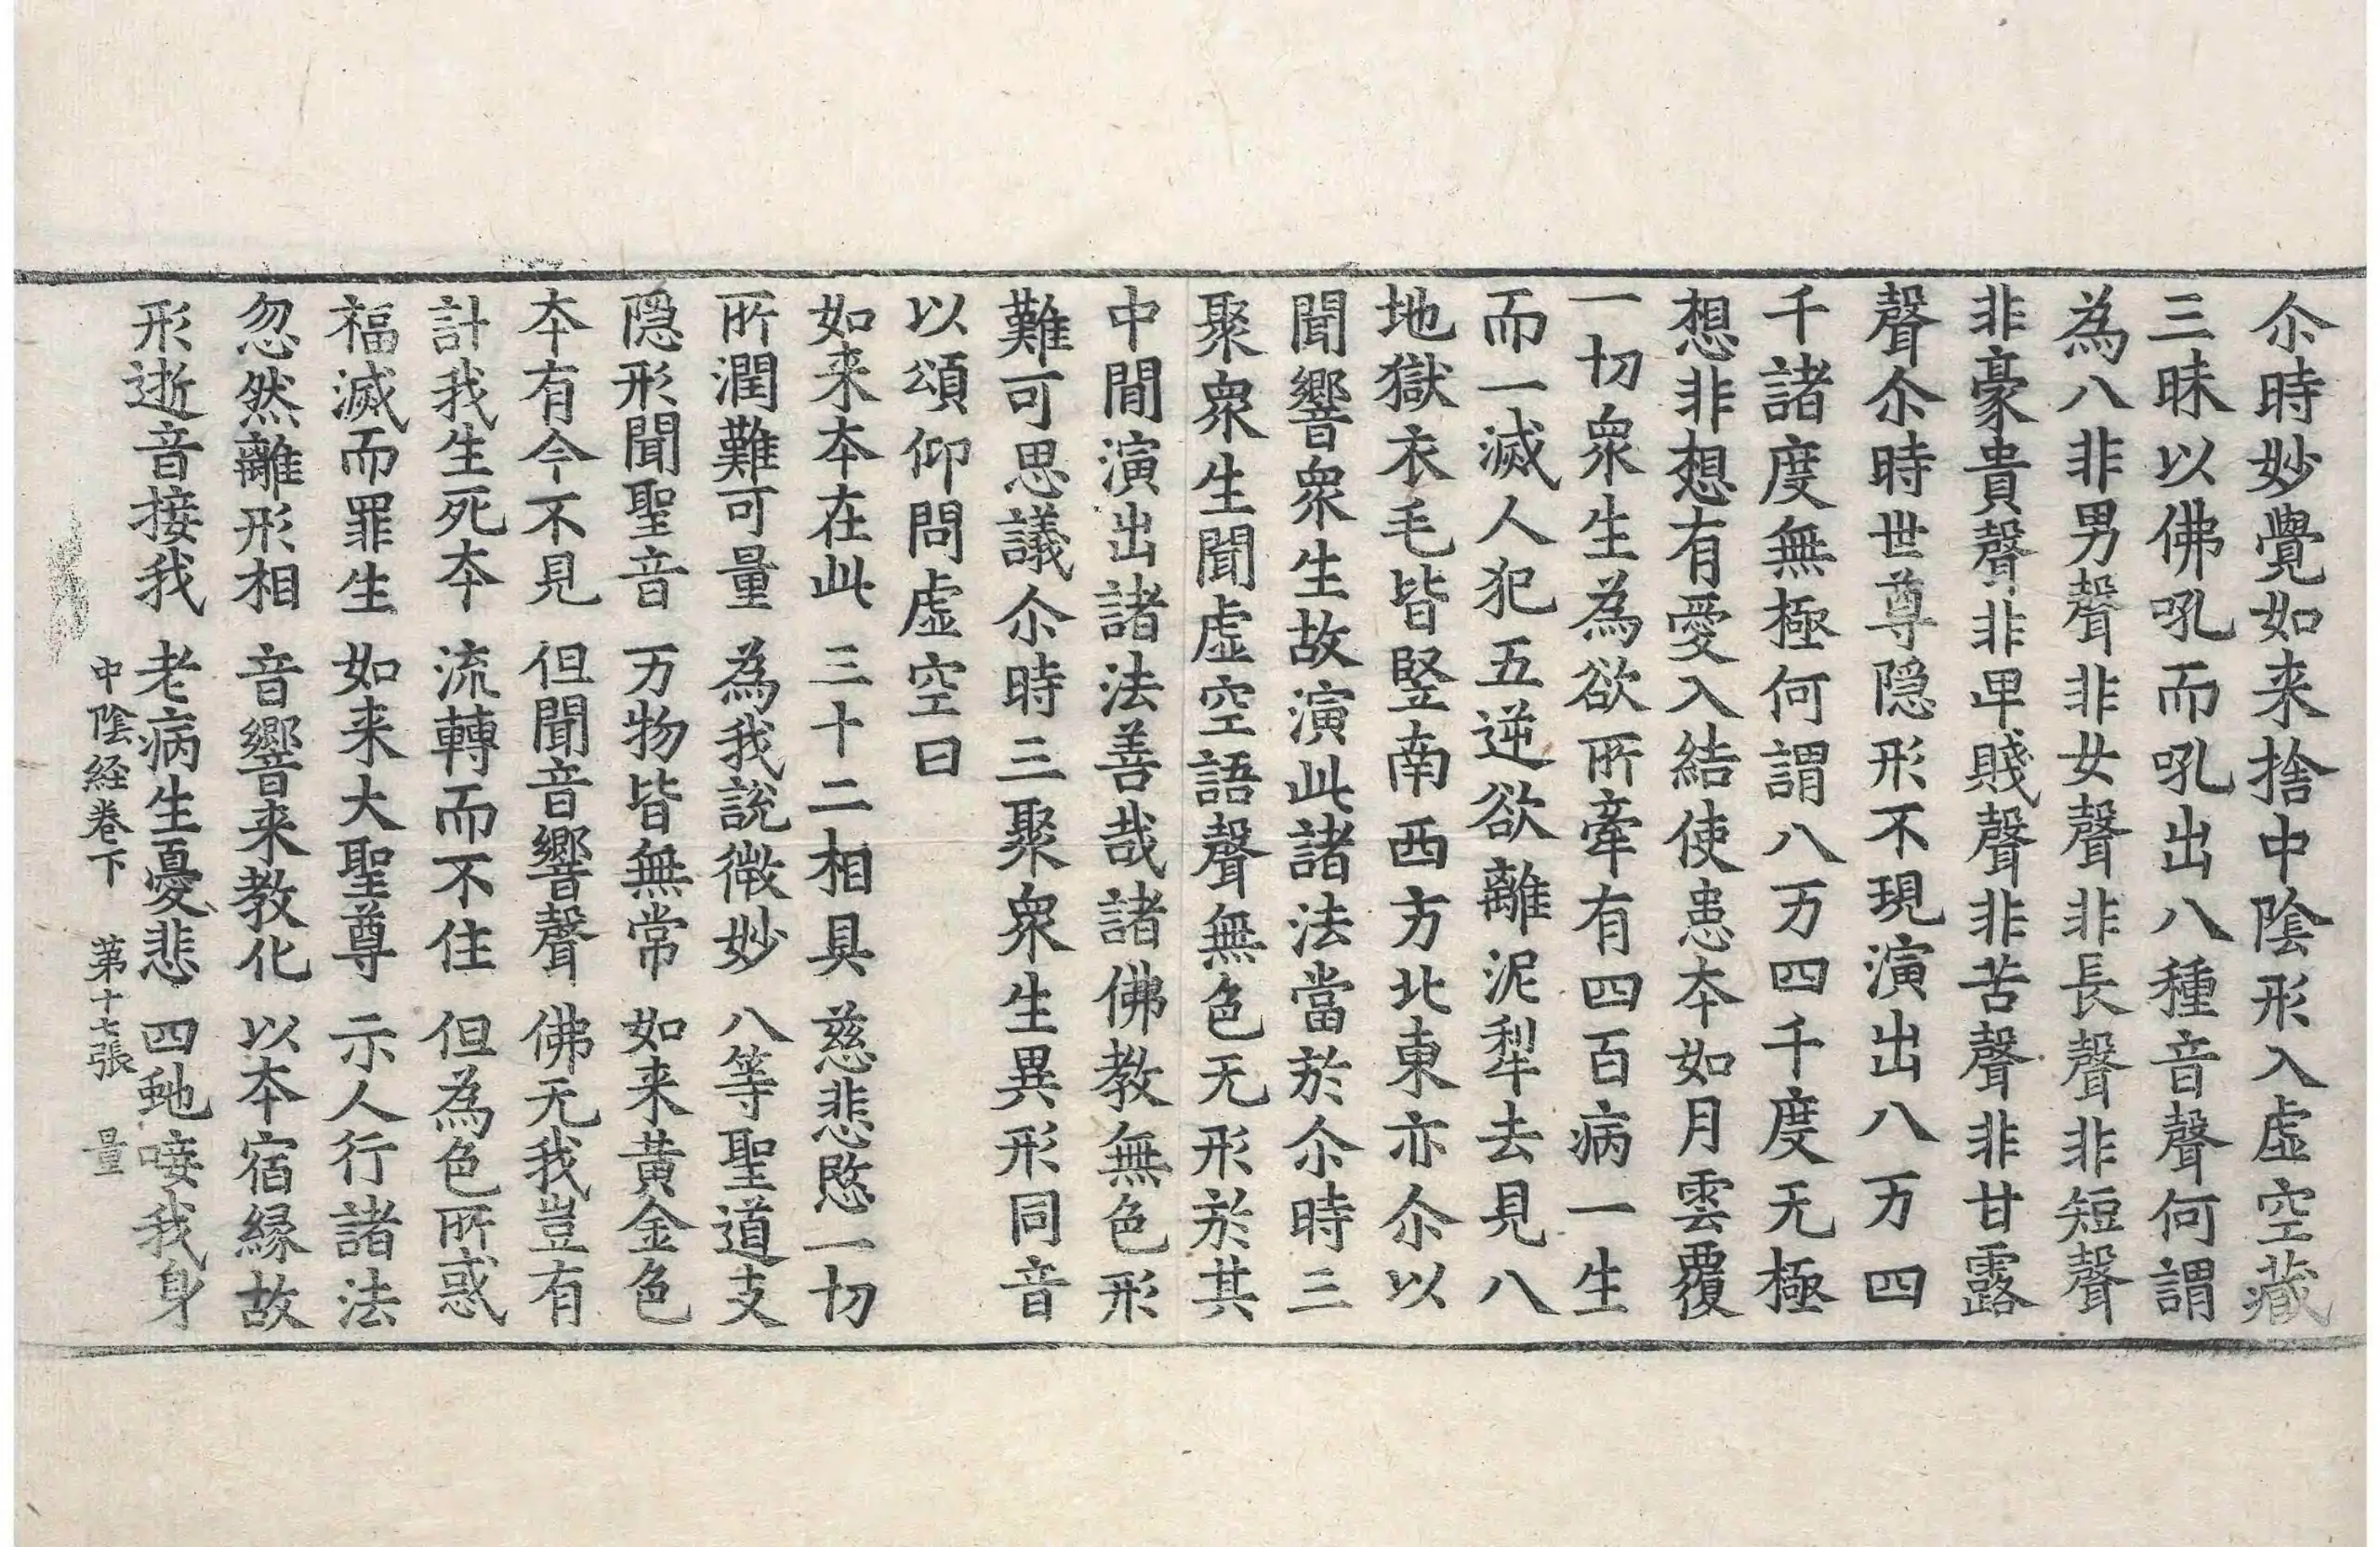 尒時妙覺如来捨中陰形入虛空藏
三昧以佛吼而吼出八種音聲何謂
為八非男聲非女聲非長聲非短聲
非豪貴聲非卑賤聲非苦聲非甘露
聲尒時世尊隱形不現演出八万四
千諸度無極何謂八万四千度无極
想非想有愛入結使患本如月雲覆
一切衆生為欲所牽有四百病一生
而一滅人犯五逆欲離泥犁去見八
地獄衣毛皆竪南西方北東亦尒以
聞響衆生故演此諸法當於尒時三
聚衆生聞虛空語聲無色无形於其
中間演出諸法善哉諸佛教無色形
難可思議尒時三聚衆生異形同音
以頌仰問虛空曰
如来本在此 三十二相具 慈悲愍一切
所潤難可量 為我說微妙 八等聖道支
隱形聞聖音 万物皆無常 如来黃金色
本有今不見 但聞音響聲 佛无我豈有
計我生死本 流轉而不住 但為色所惑
福滅而罪生 如来大聖尊 示人行諸法
忽然離形相 音響来教化 以本宿緣故
形逝音接我 老病生憂悲 四虵唼我身
中陰経卷下 第十七張 量